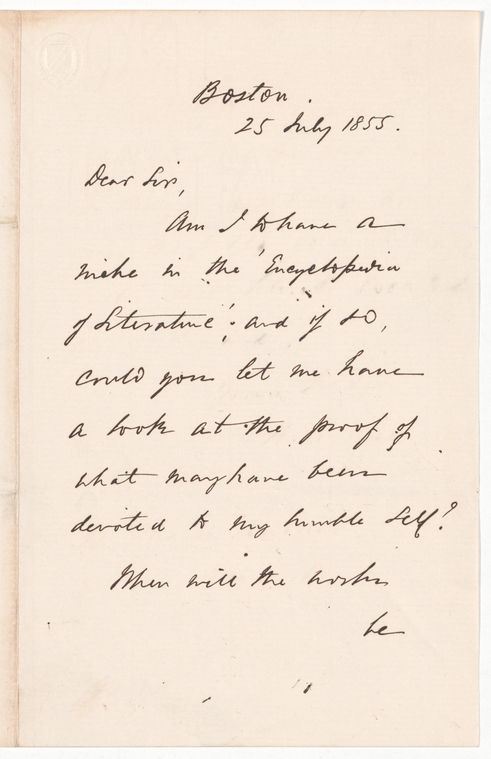 Boston.
25 July 1855.
Dear Sir,
Am I to have a
niche in the 'Encyclopedia
of Literature'; and if so,
could you let me have
a look at the proof of
what may have been
devoted to my humble self?
When will the work
be